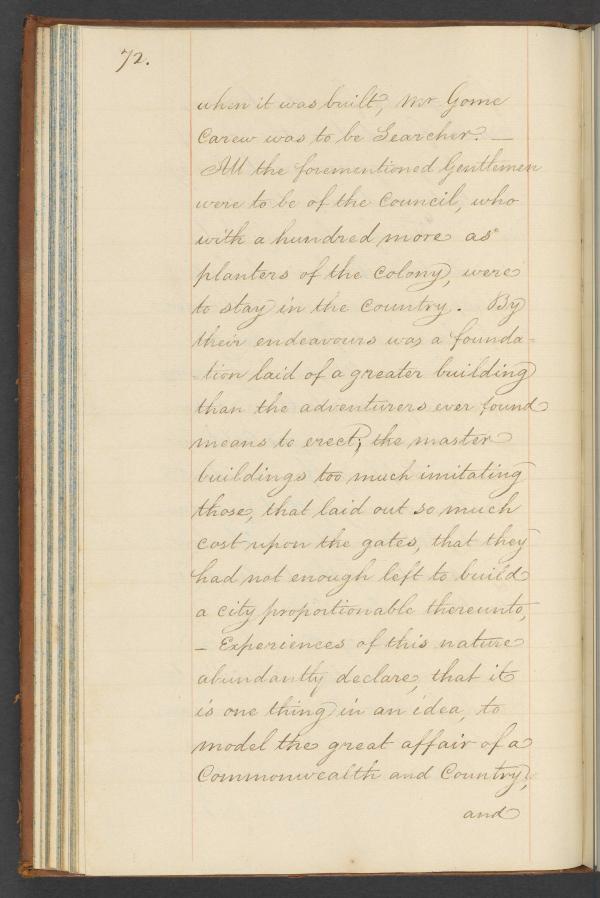 72.
when it was built, Mr Gome
Carew was to be Searcher. —
All the forementioned Gentlemen
were to be of the Council, who
with a hundred more as
planters of the colony, were
to stay in the country. By
their endeavours was a founda-
-tion laid of a greater building
than the adventurers ever found
means to erect; the master
buildings too much imitating
those, that laid out so much
cost upon the gates, that they
had not enough left to build
a city proportionable thereunto,
— Experiences of this nature
abundantly declare, that it
is one thing in an idea, to
model the great affair of a
Commonwealth and Country,
and